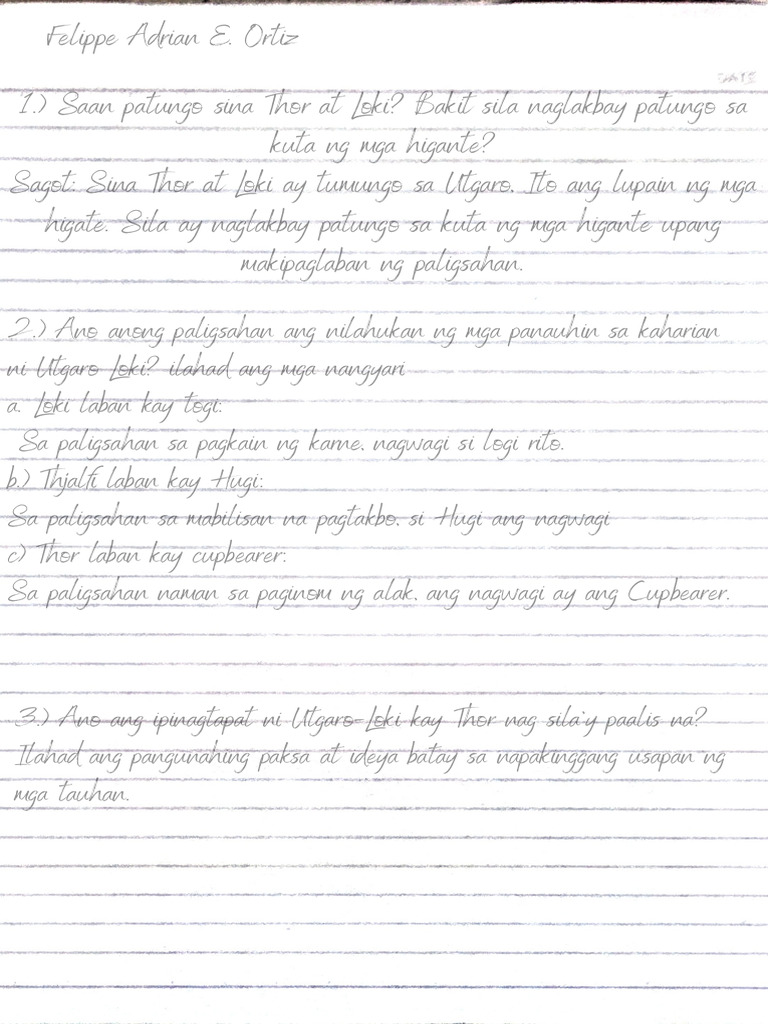 Felippe Adrian E. Ortiz
DATE
1.) Saan patungo sina Thor at Loki? Bakit sila naglakbay patungo sa
kuta ng mga higante?
Sagot: Sina Thor at Loki ay tumungo sa Utgaro. Ito ang lupain ng mga
higate. Sila ay naglakbay patungo sa kuta ng mga higante upang
makipaglaban ng paligsahan.
2.) Ano anong paligsahan ang nilahukan ng mga panauhin sa kaharian
ni Utgaro Loki? ilahad ang mga nangyari
a. Loki laban kay togi:
Sa paligsahan sa pagkain ng karne. nagwagi si logi rito.
b.) Thjalfi laban kay Hugi:
Sa paligsahan sa mabilisan na pagtakbo. si Hugi ang nagwagi
c) Thor laban kay cupbearer:
Sa paligsahan naman sa paginom ng alak. ang nagwagi ay ang Cupbearer.
3.) Ano ang ipinagtapat ni Utgaro-Loki kay Thor nag sila'y paalis na?
Ilahad ang pangunahing paksa at ideya batay sa napakinggang usapan ng
mga tauhan.